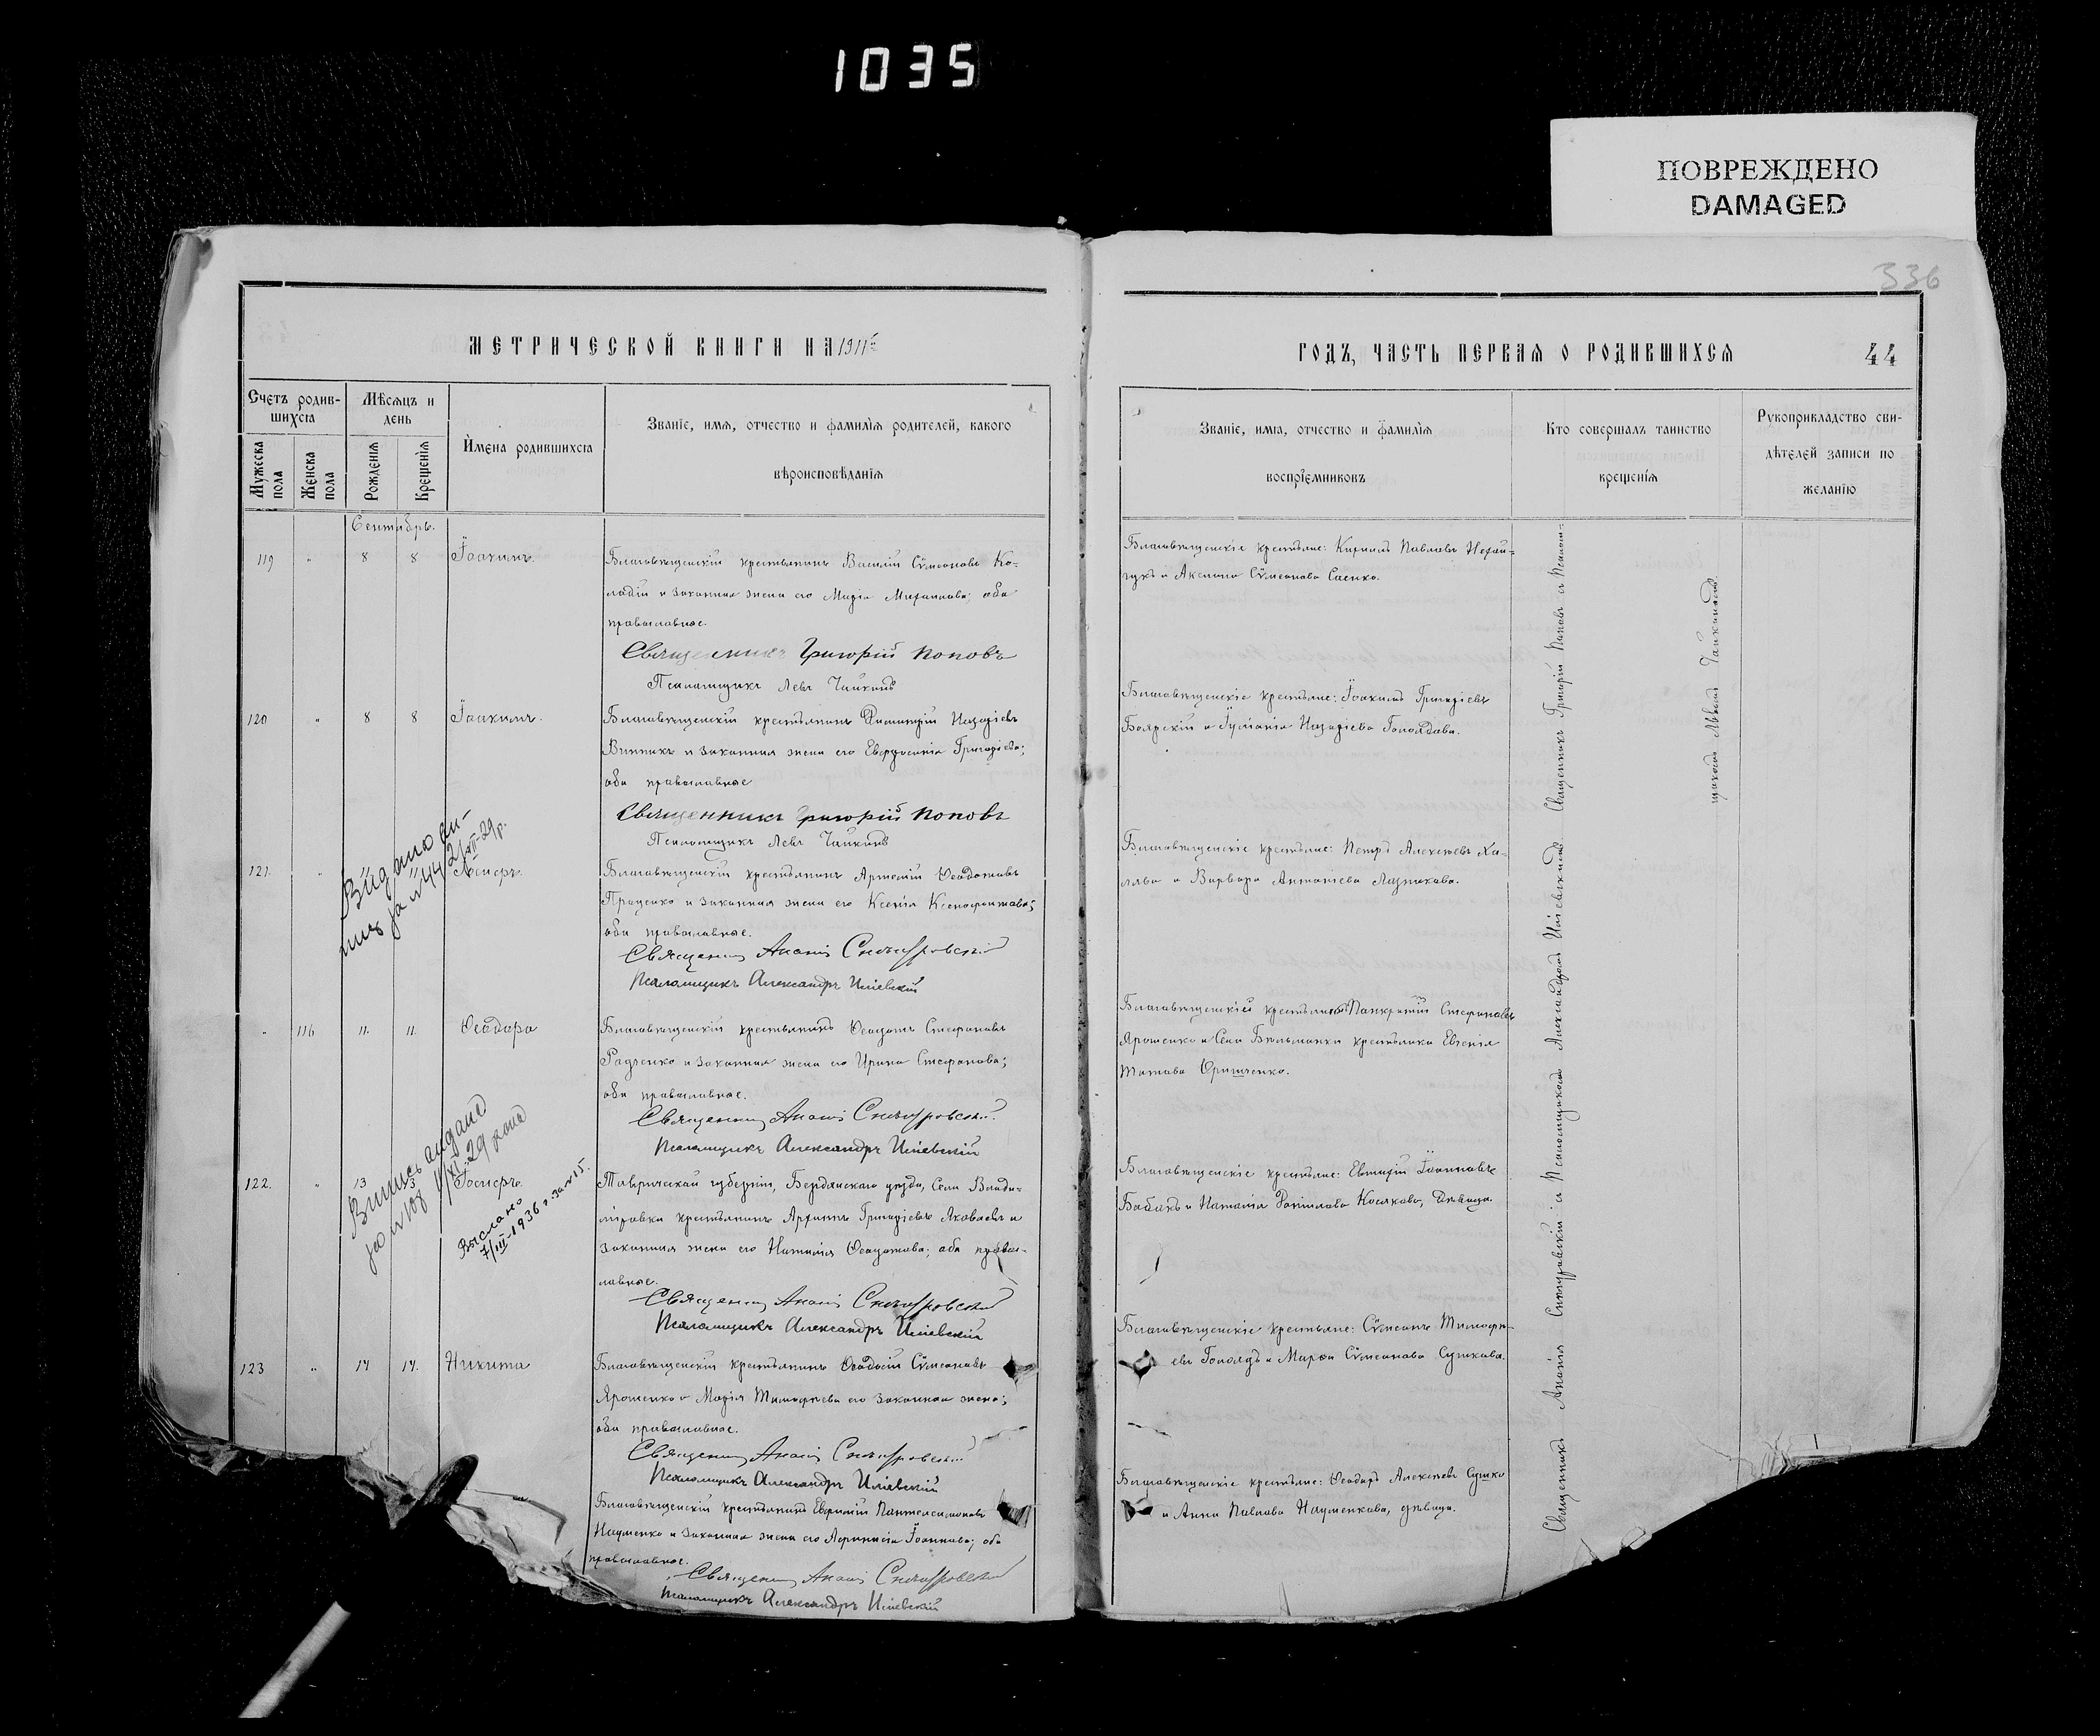 1035
ПОВРЕЖДЕНО
DAMAGED
336
МЕТРИЧЕСКОЙ КНИГИ НА 1911й
ГОДЪ, ЧАСТЬ ПЕРВАЯ О РОДИВШИХСЯ
44
Счетъ родив-
шихся
Мужеска пола
Женска пола
Мѣсяцъ и
день
Рожденія
Крещенія
Имена родившихся
Званіе, имя, отчество и фамилія родителей, какого
вѣроисповѣданія
Званіе, имя, отчество и фамилія
воспріемниковъ
Кто совершалъ таинство
крещенія
Рукоприкладство сви-
дѣтелей записи по
желанію
Сентябрь.
119 " 8 8 Іоакимъ.
Благовѣщенскій крестьянинъ Василій Сѵмеоновъ Ко-
ладій и законная жена его Марія Михайлова; оба
православные.
Священникъ Григорій Поповъ
Псаломщикъ Левъ Чайкинъ
Благовѣщенскіе крестьяне: Кириллъ Павловъ
и Аксинія Сѵмеонова Саенко.
120 " 8 8 Іоакимъ.
Благовѣщенскій крестьянинъ Димитрій Назаріевъ
Винникъ и законная жена его Евфросинія Григоріева;
оба православные
Священникъ Григорій Поповъ
Псаломщикъ Левъ Чайкинъ
Благовѣщенскіе крестьяне: Іоакимъ Григоріевъ
Боярскій и Іуліанія Назаріева Голоядова.
121. " 11 11
Видано ви-
пис за №44 2/XII-29р.
Благовѣщенскій крестьянинъ Артемій Ѳеодотовъ
Проценко и законная жена его Ксенія Ксенофонтова;
оба православные.
Священникъ Ананій
Псаломщикъ Александръ Иліевскій
Благовѣщенскіе крестьяне: Петръ Алексѣевъ Ха-
лява и Варвара Антоніева Лазнякова.
" 116 11. 11. Ѳеодора
Благовѣщенскій крестьянинъ Ѳеодотъ Стефановъ
Радченко и законная жена его Ирина Стефанова;
оба православные.
Священникъ Ананій
Псаломщикъ Александръ Иліевскій
Благовѣщенскій крестьянинъ Панкратій Стефановъ
Ярошенко и Села Бѣльманки крестьянка Евгенія
Титова
122. " 13 13 Іосифъ.
Випись видано
за №108 11/XI-29 року
Выслано
7/III-1936 г. за №15.
Таврической губерніи, Бердянскаго уѣзда, Села Влади-
міровки крестьянинъ Архипъ Григоріевъ Яковлевъ и
законная жена его Наталія Ѳеодотова; оба право-
славные.
Священникъ Ананій
Псаломщикъ Александръ Иліевскій
Благовѣщенскіе крестьяне: Евтихій Іоанновъ
Бабакъ и Наталія Даніилова Косякова, дѣвица
123 " 14 14. Никита
Благовѣщенскій крестьянинъ Ѳеодосій Сѵмеоновъ
Ярошенко и Марія Тимофѣева его законная жена;
оба православные.
Священникъ Ананій
Псаломщикъ Александръ Иліевскій
Благовѣщенскіе крестьяне: Сѵмеонъ Тимофѣ-
евъ Голоядъ и Марѳа Сѵмеонова Сушкова.
Благовѣщенскій крестьянинъ Евфимій Пантелеимоновъ
Науменко и законная жена его Іоаннова; оба
православные.
Священникъ Ананій
Псаломщикъ Александръ Иліевскій
Благовѣщенскіе крестьяне: Ѳеодоръ Алексѣевъ Сушко
и Анна Павлова Науменкова, дѣвица.
Священникъ Григорій Поповъ съ Псалом-
щикомъ Львомъ Чайкинымъ
Священникъ Ананія съ Псаломщикомъ Александромъ Иліевскимъ.